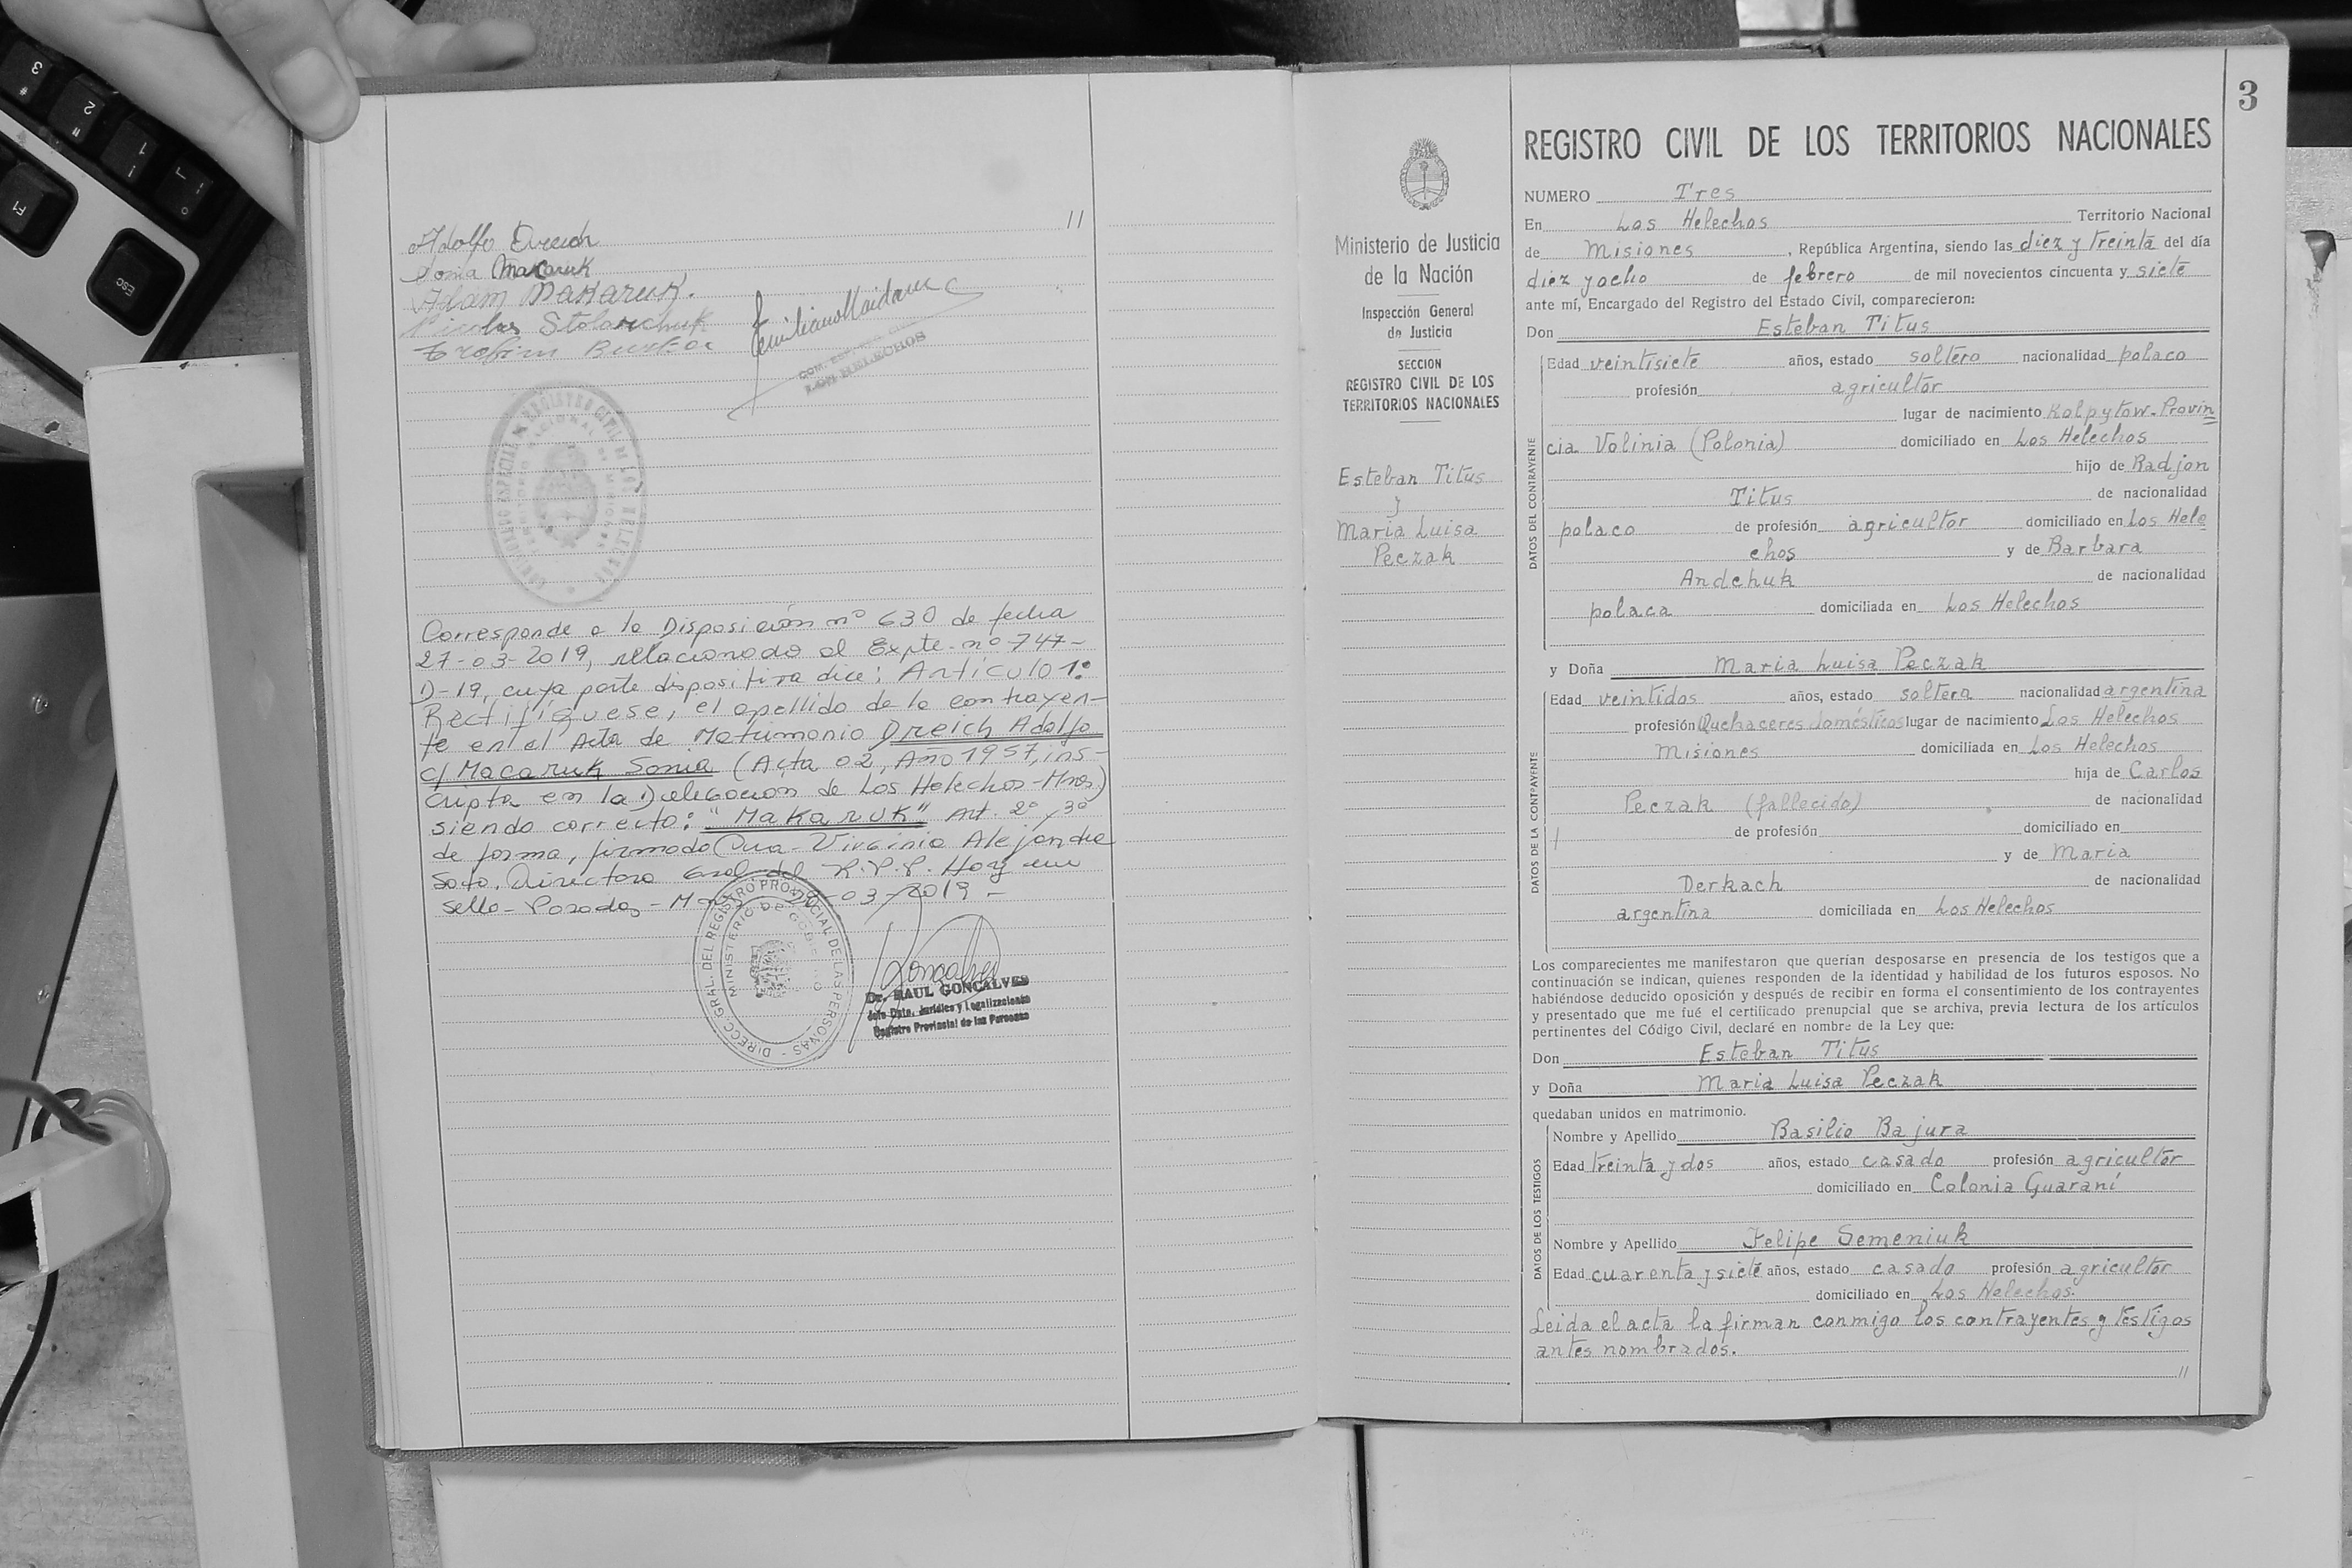 11
Adolfo Dreich
Sonia Makaruk
Adam Makaruk.
Nicolas Stolarchuk
Emiliano Maidana
LOS HELECHOS
Corresponde a la Disposición nº 630 de fecha
27-03-2019, relacionado al Expte. nº 747-
D-19, cuya parte dispositiva dice: Artículo 1º
Rectifíquese, el apellido de la contrayen-
te en el Acta de Matrimonio Dreich Adolfo
c/ Macaruk Sonia (Acta 02, Año 1957, ins-
cripta en la Delegacion de Los Helechos-Mnes)
siendo correcto: "Makaruk" Art. 2º y 3º
de forma, firmado Dra. Virginia Alejandra
Soto. Directora Gral del R.P.P. Hoy
sello - Posadas - 03-2019 -
DIRECC. GRAL. DEL REGISTRO PROVINCIAL DE LAS PERSONAS
MINISTERIO DE GOBIERNO
Dr. RAUL GONCALVES
Jefe Dpto. Jurídico y Legalizaciones
Registro Provincial de las Personas
Ministerio de Justicia
de la Nación
Inspección General
de Justicia
SECCION
REGISTRO CIVIL DE LOS
TERRITORIOS NACIONALES
Esteban Titus
y
Maria Luisa
Peczak
3
REGISTRO CIVIL DE LOS TERRITORIOS NACIONALES
NUMERO Tres
En Los Helechos Territorio Nacional
de Misiones, República Argentina, siendo las diez y treinta del día
diez y ocho de febrero de mil novecientos cincuenta y siete
ante mí, Encargado del Registro del Estado Civil, comparecieron:
Don Esteban Titus
DATOS DEL CONTRAYENTE
Edad veintisiete años, estado soltero nacionalidad polaco
profesión agricultor
lugar de nacimiento Kolpytow-Provin
cia Volinia (Polonia) domiciliado en Los Helechos
hijo de Radjon
Titus de nacionalidad
polaco de profesión agricultor domiciliado en Los Hele
chos y de Barbara
Andchuk de nacionalidad
polaca domiciliada en Los Helechos
y Doña Maria Luisa Peczak
DATOS DE LA CONTRAYENTE
Edad veintidos años, estado soltera nacionalidad argentina
profesión Quehaceres domésticos lugar de nacimiento Los Helechos
Misiones domiciliada en Los Helechos
hija de Carlos
Peczak (fallecido) de nacionalidad
de profesión domiciliado en
y de Maria
Derkach de nacionalidad
argentina domiciliada en Los Helechos
Los comparecientes me manifestaron que querían desposarse en presencia de los testigos que a
continuación se indican, quienes responden de la identidad y habilidad de los futuros esposos. No
habiéndose deducido oposición y después de recibir en forma el consentimiento de los contrayentes
y presentado que me fué el certificado prenupcial que se archiva, previa lectura de los artículos
pertinentes del Código Civil, declaré en nombre de la Ley que:
Don Esteban Titus
y Doña Maria Luisa Peczak
quedaban unidos en matrimonio.
DATOS DE LOS TESTIGOS
Nombre y Apellido Basilio Bajura
Edad treinta y dos años, estado casado profesión agricultor
domiciliado en Colonia Guaraní
Nombre y Apellido Felipe Semeniuk
Edad cuarenta y siete años, estado casado profesión agricultor
domiciliado en Los Helechos.
Leida el acta la firman conmigo los contrayentes y testigos
antes nombrados.
//